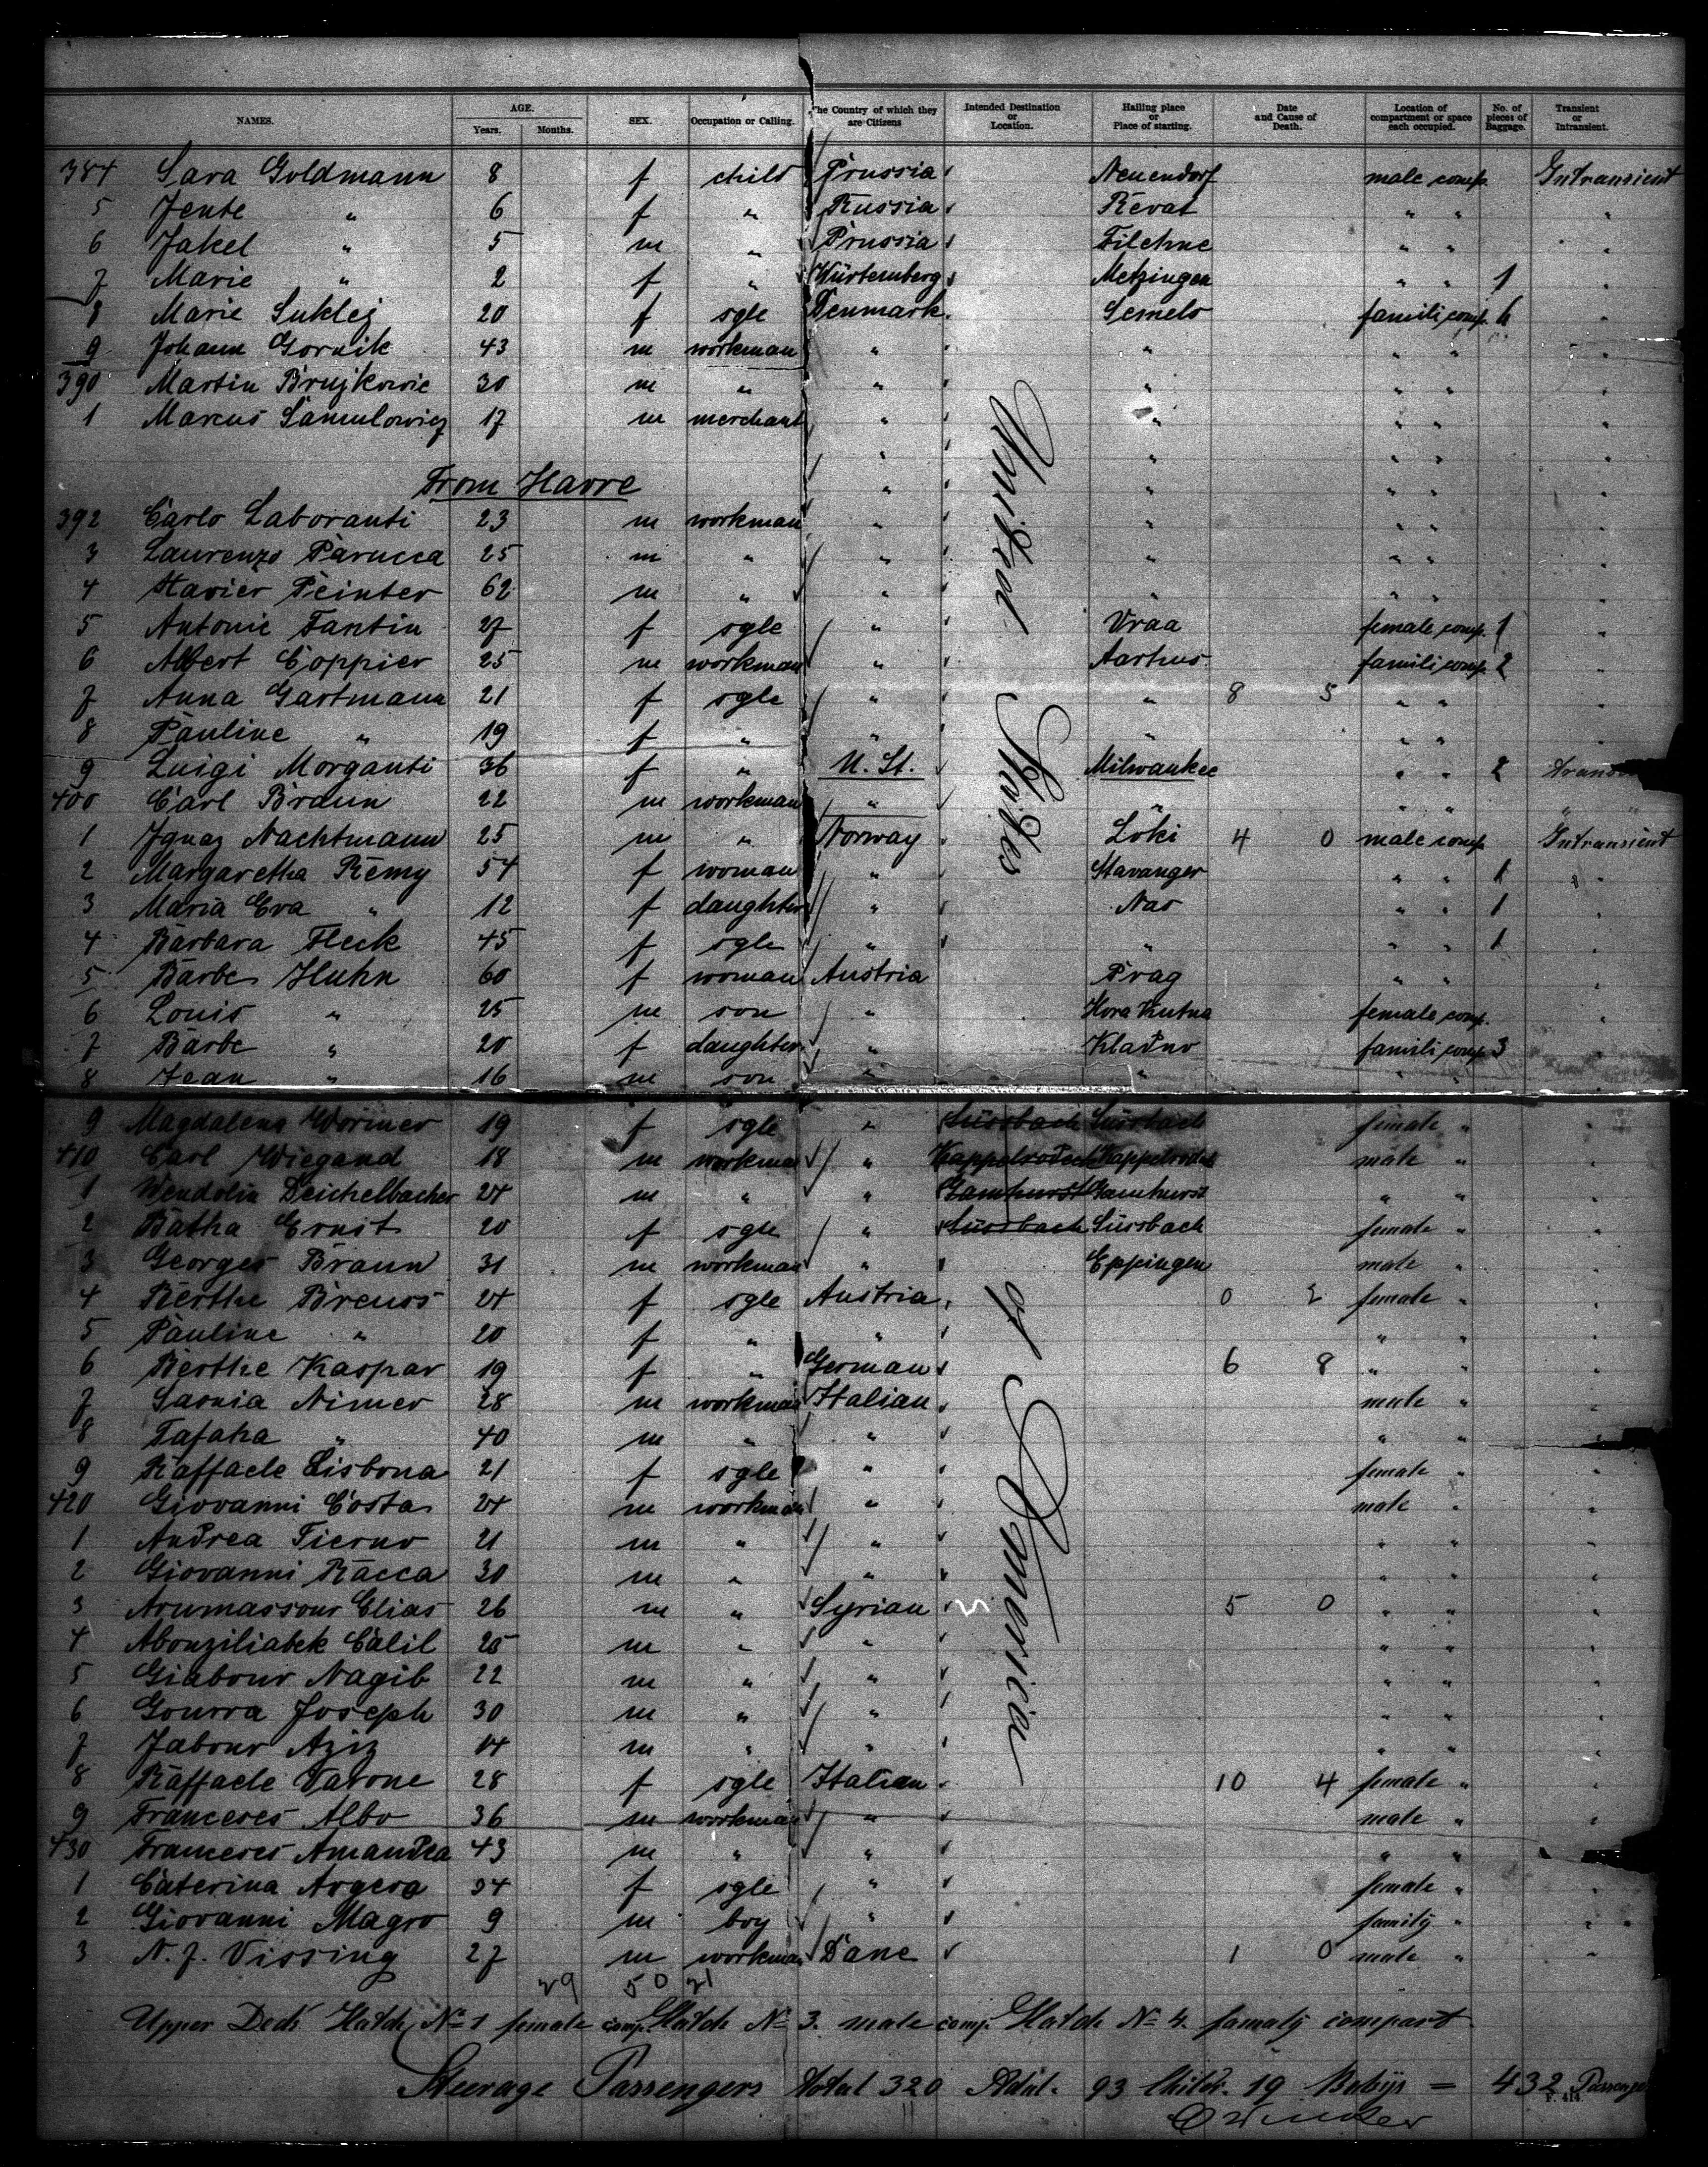 NAMES. AGE. Years. Months. SEX. Occupation or Calling. The Country of which they are Citizens Intended Destination or Location. Hailing place or Place of starting. Date and Cause of Death. Location of compartment or space each occupied. No. of pieces of Baggage. Transient or Intransient.
384 Sara Goldmann 8 f child Prussia Neuendorf male comp. Intransient
5 Jente " 6 f " Russia Reval " " "
6 Jakel " 5 m " Prussia Filehne " " "
7 Marie " 2 f " Würtemberg Metzingen " " 1 "
8 Marie Suklej 20 f sgle Denmark Semelo famili comp. "
9 Johann Gornik 43 m workman " " " " "
390 Martin Brujkovic 30 m " " " " " "
1 Marcus Samulowicz 17 m merchant " " " " "
" " " " "
From Havre " " " " "
392 Carlo Laboranti 23 m workman " " " " "
3 Laurenzo Parucca 25 m " " " " " "
4 Xavier Peinter 62 m " " " " " "
5 Antonie Fantin 27 f sgle " Vraa female comp. 1 "
6 Albert Coppier 25 m workman " Aarhus famili comp. 2 "
7 Anna Gartmann 21 f sgle " " 8 5 " " "
8 Pauline " 19 f " " " " " "
9 Luigi Morganti 36 f " U. St. Milwaukee " " 2
400 Carl Braun 22 m workman " " " " " "
1 Ignaz Nachtmann 25 m " Norway Löki 4 0 male comp. Intransient
2 Margaretha Remy 54 f woman " Stavanger " " 1 "
3 Maria Eva " 12 f daughter " Nas " " 1 "
4 Barbara Fleck 45 f sgle " " " " 1 "
5 Barbe Huhn 60 f woman Austria Prag " " "
6 Louis " 25 m son " Hora Kutna female comp. "
7 Barbe " 20 f daughter " Kladno famili comp. 3 "
8 Jean " 16 m son " " " "
9 Magdalena Wormer 19 f sgle " Süssbach Süssbach female " "
410 Carl Wiegand 18 m workman " Kappelrodeck Kappelrodeck male " "
1 Wendolin Deichelbacher 24 m " " Gamhurst Gamhurst " " "
2 Batha Ernst 20 f sgle " Süssbach Süssbach female " "
3 Georges Braun 31 m workman " Eppingen male " "
4 Berthe Breuss 24 f sgle Austria 0 2 female " "
5 Pauline " 20 f " " " " "
6 Berthe Kaspar 19 f " German 6 8 " " "
7 Sasnia Nimer 28 m workman Italian male " "
8 Tafaha " 40 m " " " " "
9 Raffaele Lisbona 21 f sgle " female " "
420 Giovanni Costa 24 m workman " male " "
1 Andrea Tierno 21 m " " " " "
2 Giovanni Racca 30 m " " " " "
3 Aoumassour Elias 26 m " Syrian 5 0 " " "
4 Abouziliabek Calil 25 m " " " " "
5 Giabour Nagib 22 m " " " " "
6 Gourra Joseph 30 m " " " " "
7 Jabour Aziz 14 m " " " " "
8 Raffaele Varone 28 f sgle Italian 10 4 female " "
9 Franceres Albo 36 m workman " male " "
430 Franceres Amandea 43 m " " " " "
1 Caterina Argera 34 f sgle " female " "
2 Giovanni Magro 9 m boy " family " "
3 N. J. Vissing 27 m workman Dane 1 0 male " "
United States of America
29 50 21
Upper Deck Hatch No 1 female comp. Hatch No 3. male comp. Hatch No 4. famaly compart
Steerage Passengers total 320 Adul. 93 Childr. 19 Babijs = 432 Passenger